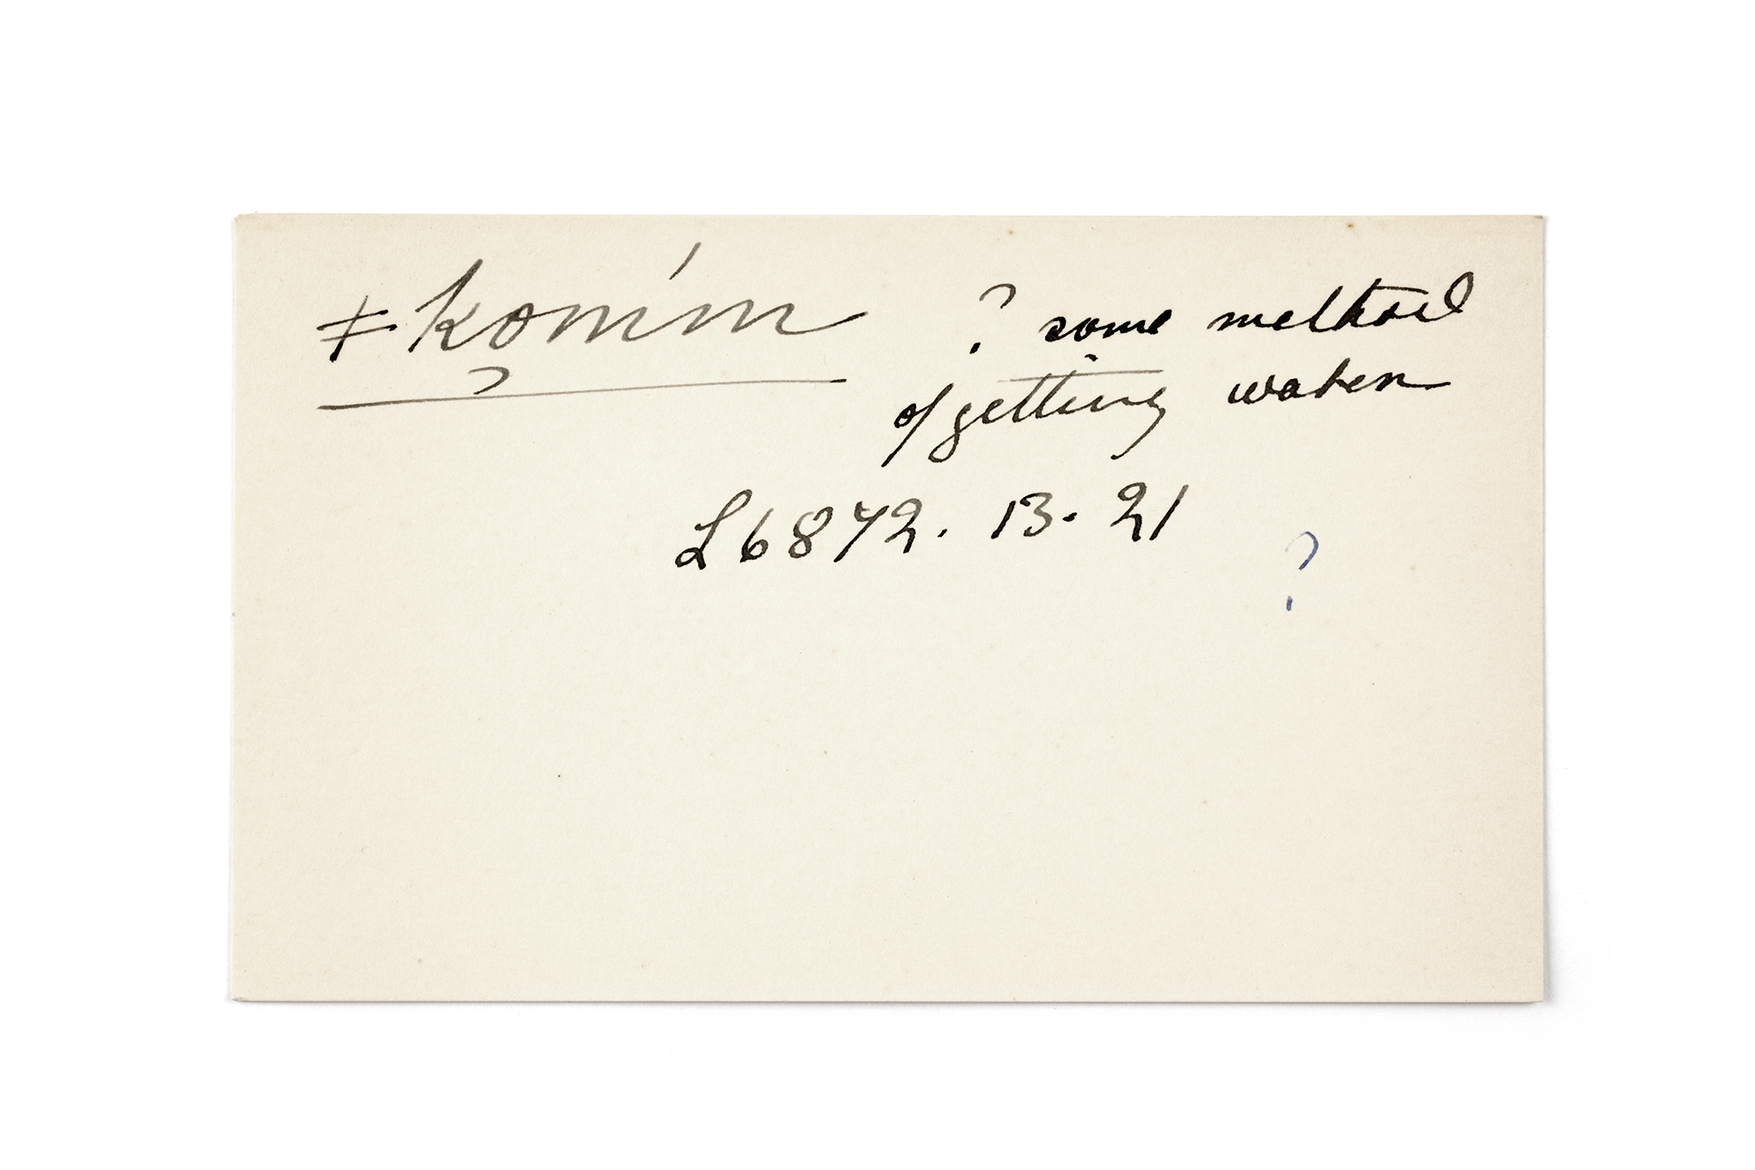 ǂkom´m ? some method
of getting water
L6872. 13. 21
?